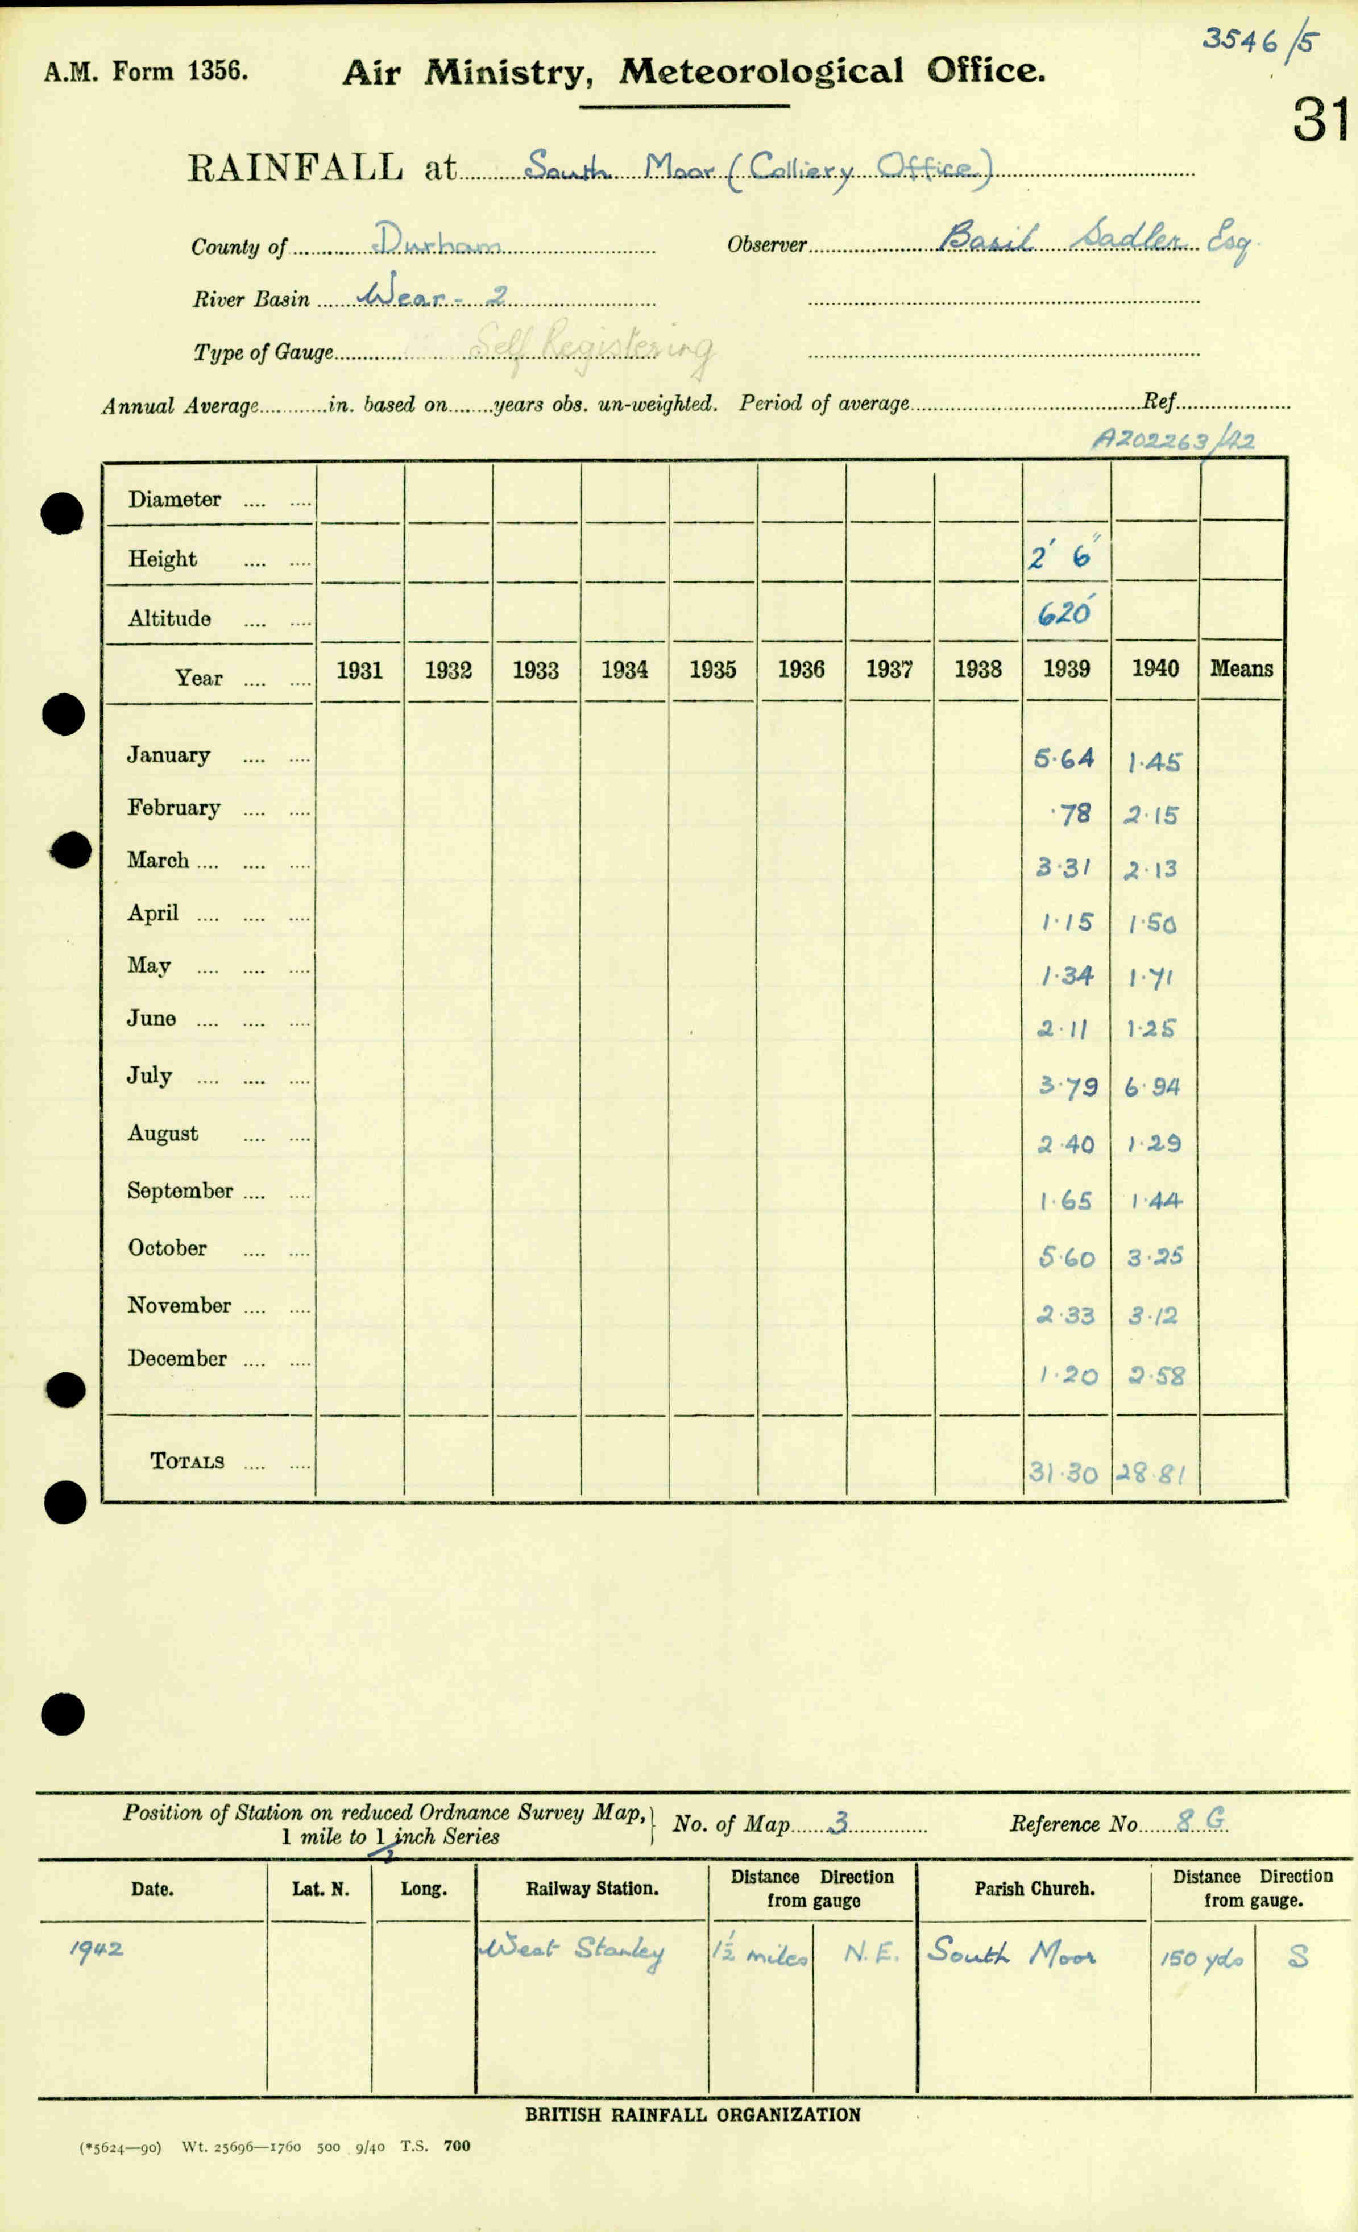 3546/5
A.M. Form 1356. Air Ministry, Meteorological Office.
31
RAINFALL at South Moor (Colliery Office)
County of Durham Observer Basil Sadler Esq.
River Basin Wear - 2
Type of Gauge Self Registering
Annual Average in. based on years obs. un-weighted. Period of average Ref
A202263/42
Diameter
Height 2' 6"
Altitude 620'
Year 1931 1932 1933 1934 1935 1936 1937 1938 1939 1940 Means
January 5.64 1.45
February .78 2.15
March 3.31 2.13
April 1.15 1.50
May 1.34 1.71
June 2.11 1.25
July 3.79 6.94
August 2.40 1.29
September 1.65 1.44
October 5.60 3.25
November 2.33 3.12
December 1.20 2.58
TOTALS 31.30 28.81
Position of Station on reduced Ordnance Survey Map, No. of Map 3 Reference No. 8 G.
1 mile to 1 inch Series
2
Date. Lat. N. Long. Railway Station. Distance Direction from gauge Parish Church. Distance Direction from gauge.
1942 West Stanley 1½ miles N.E. South Moor 150 yds S
BRITISH RAINFALL ORGANIZATION
(*5624—90) Wt. 25696—1760 500 9/40 T.S. 700